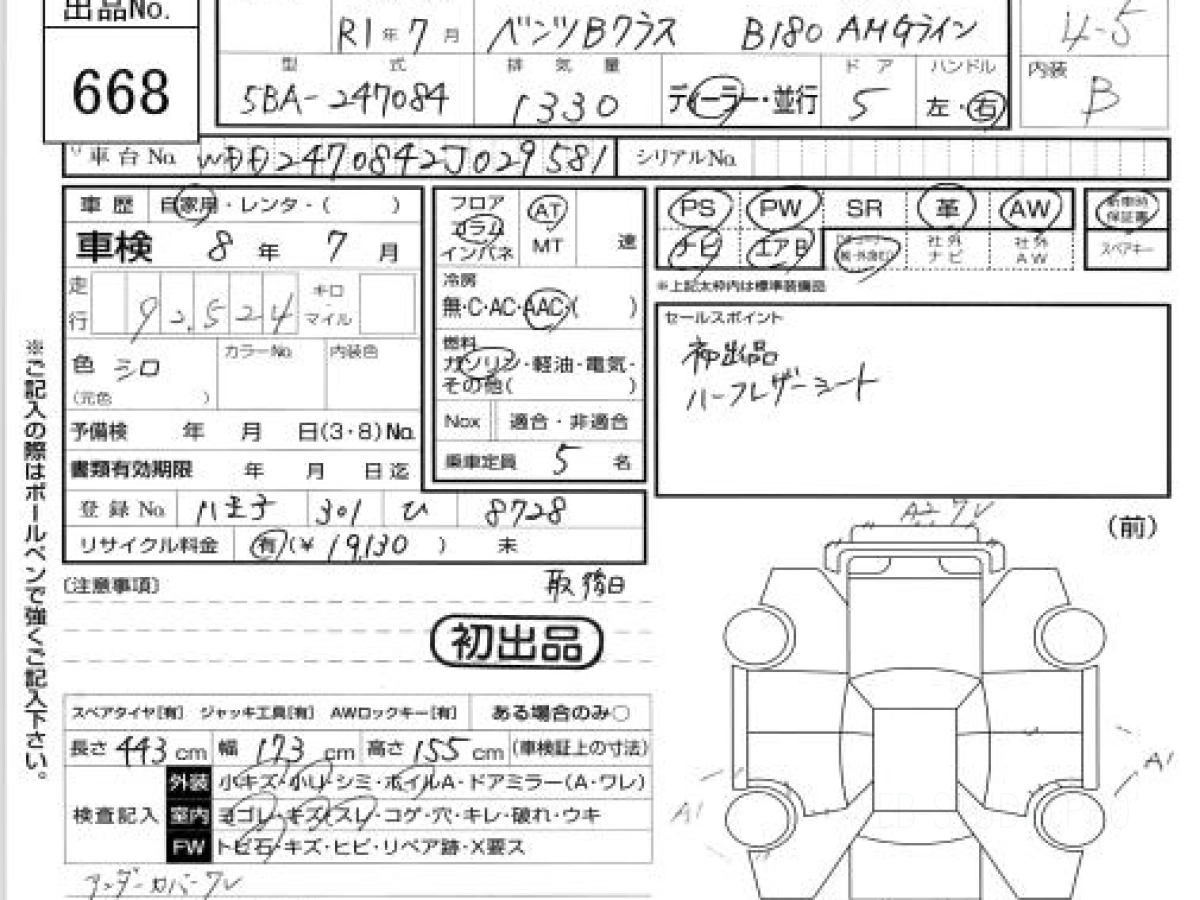 出品No.
668
R1年7月 ベンツBクラス B180 AMGライン 4-5
型式 排気量 ドア ハンドル 内装
5BA-247084 1330 ディーラー・並行 5 左・右 B
車台No. WDD2470842J029581 シリアルNo.
車歴 自家用・レンタ・( )
車検 8年 7月
走行 92,524 キロ・マイル
色 シロ カラーNo. 内装色
(元色 )
予備検 年 月 日(3・8)No.
書類有効期限 年 月 日迄
登録No. 八王子 301 ひ 8728
リサイクル料金 有(¥ 19,130 ) 未
フロア コラム インパネ AT MT 速
冷房
無・C・AC・AAC・( )
燃料
ガソリン・軽油・電気・
その他( )
Nox 適合・非適合
乗車定員 5 名
PS PW SR 革 AW 新車時保証書
ナビ エアB 社外ナビ 社外AW スペアキー
※上記太枠内は標準装備品
セールスポイント
初出品
ハーフレザーシート
※ご記入の際はボールペンで強くご記入下さい。
〔注意事項〕 取 後日
初出品
スペアタイヤ[有] ジャッキ工具[有] AWロックキー[有] ある場合のみ○
長さ 443 cm 幅 173 cm 高さ 155 cm (車検証上の寸法)
検査記入
外装 小キズ・小U・シミ・ホイルA・ドアミラー(A・ワレ)
室内 ヨゴレ・キズ・スレ・コゲ・穴・キレ・破れ・ウキ
FW トビ石・キズ・ヒビ・リペア跡・X要ス
アンダーカバーワレ
A2 ワレ
(前)
A1
A1